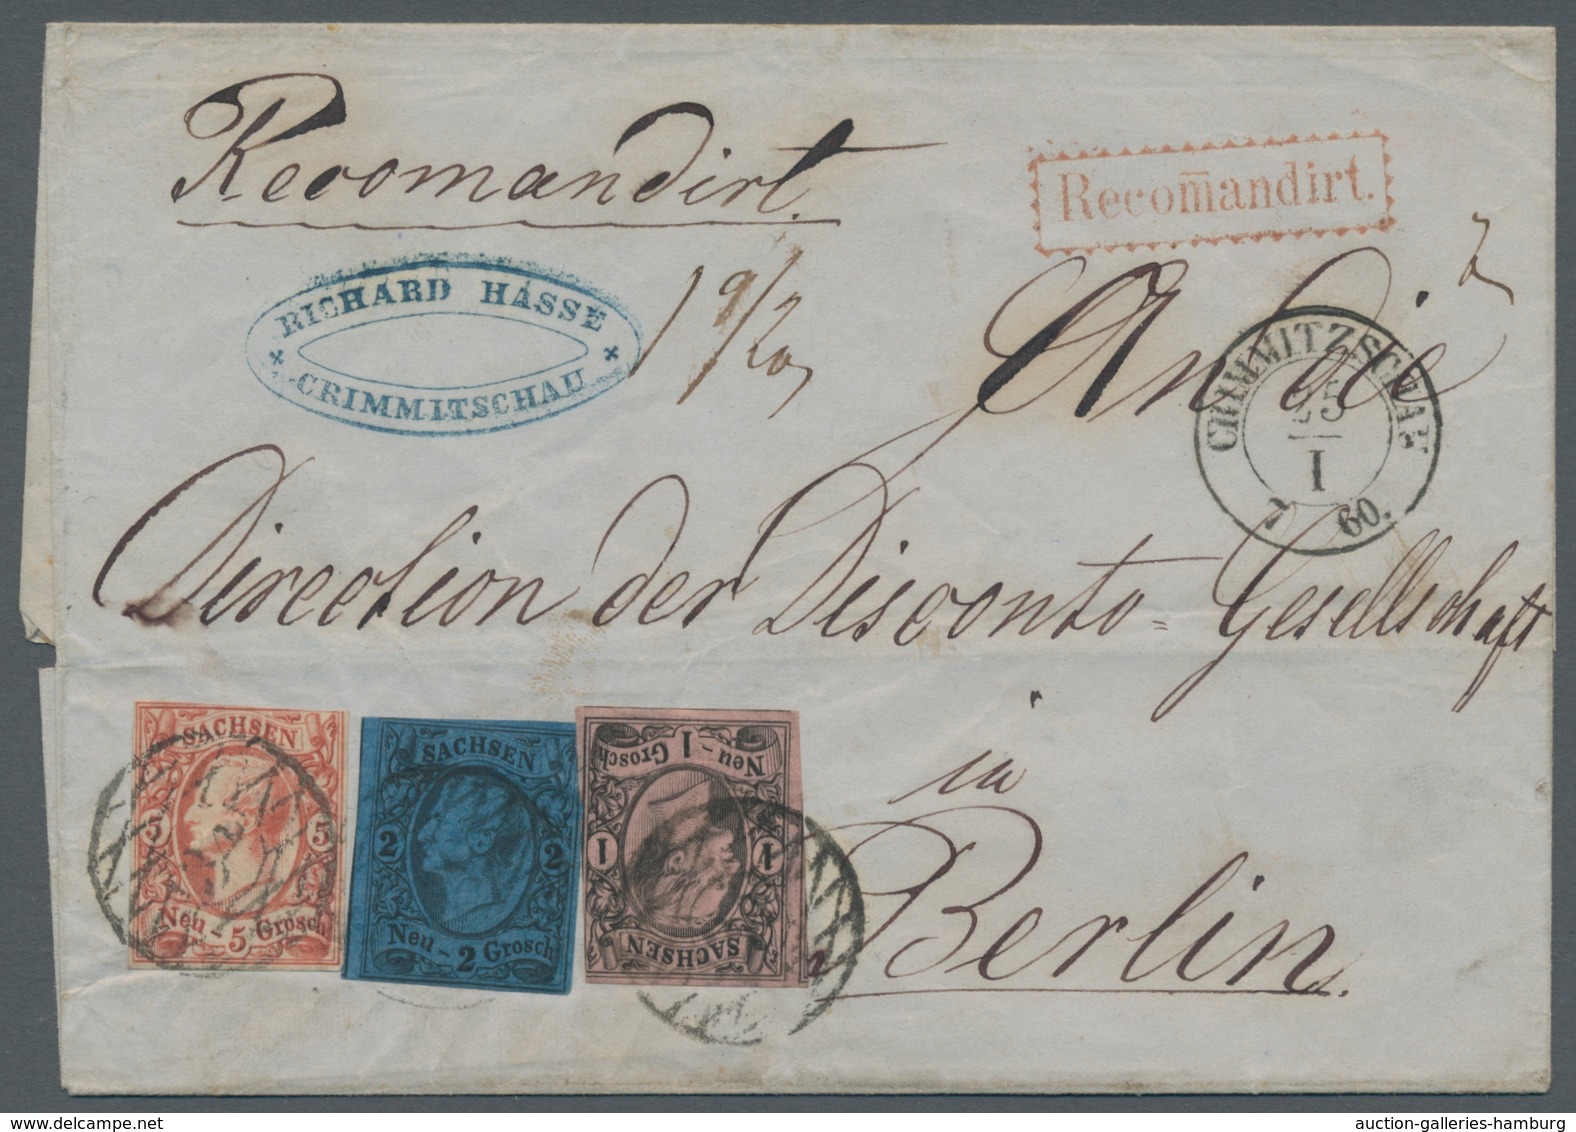 Recomandirt.
Recom̅andirt.
RICHARD HASSE
CRIMMITSCHAU
19/20
An die
CRIMMITZSCHAU
25
I
60.
Direction der Disconto=Gesellschaft
in
Berlin.
SACHSEN
5 5
Neu-5 Grosch
SACHSEN
2 2
Neu-2 Grosch
Neu-1 Grosch
1 1
SACHSEN
auction-galleries-hamburg